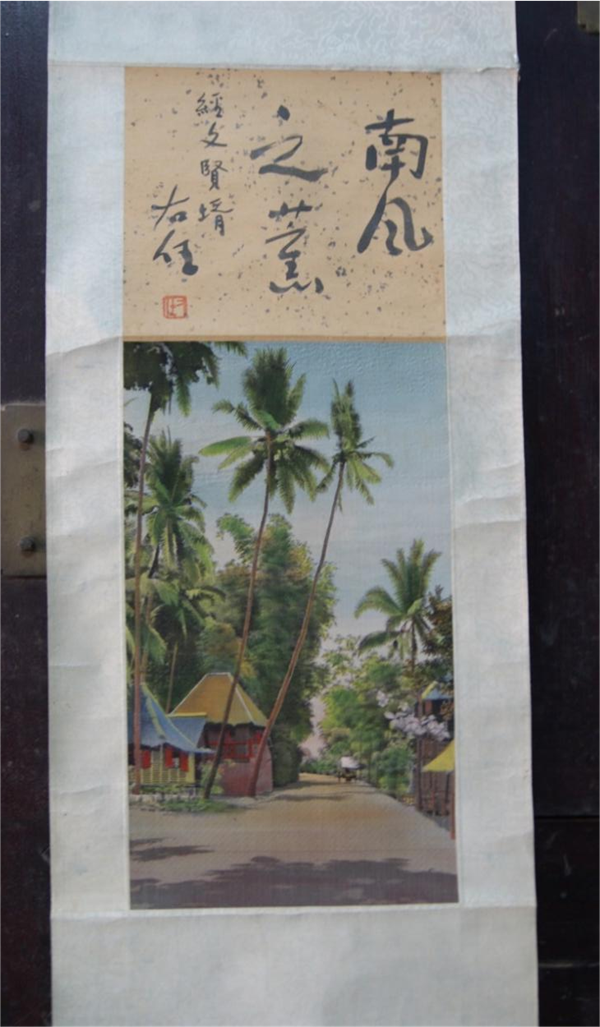 南风
之薰
經文賢壻
右任